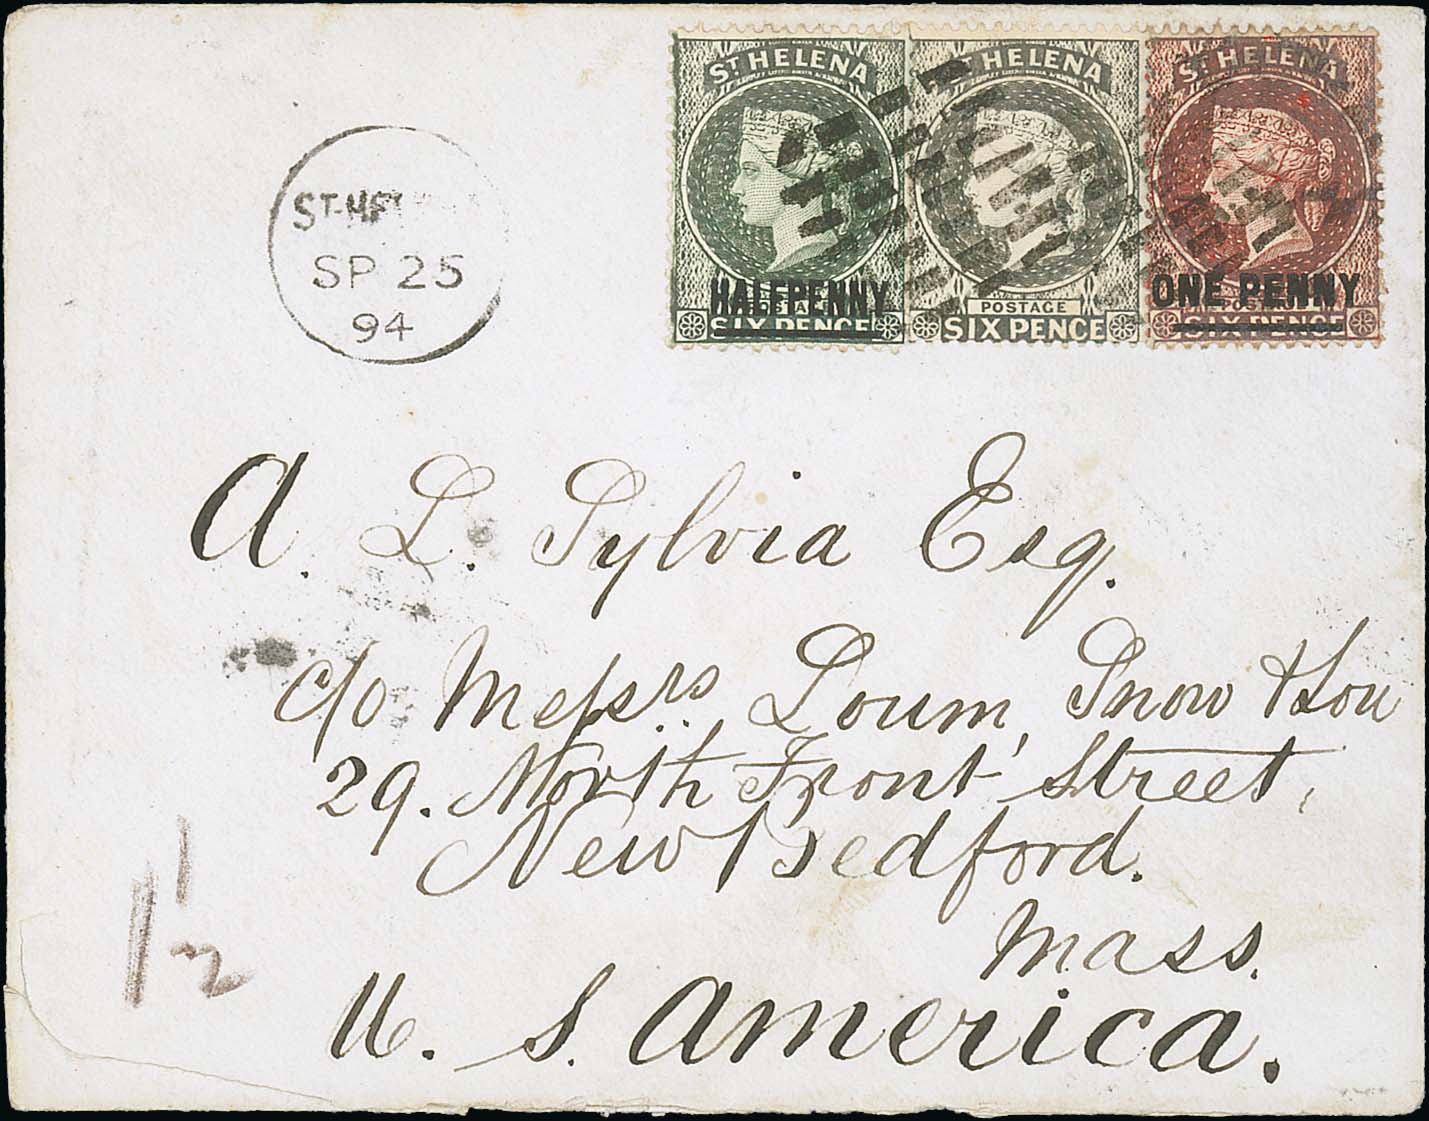 ST HELENA
HALFPENNY
SIX PENCE
ST HELENA
POSTAGE
SIX PENCE
ST HELENA
ONE PENNY
SIX PENCE
SP 25
94
A. L. Sylvia Esq.
c/o Messrs Loum, Snow & Son
29. North Front Street,
New Bedford.
Mass.
U. S. America.